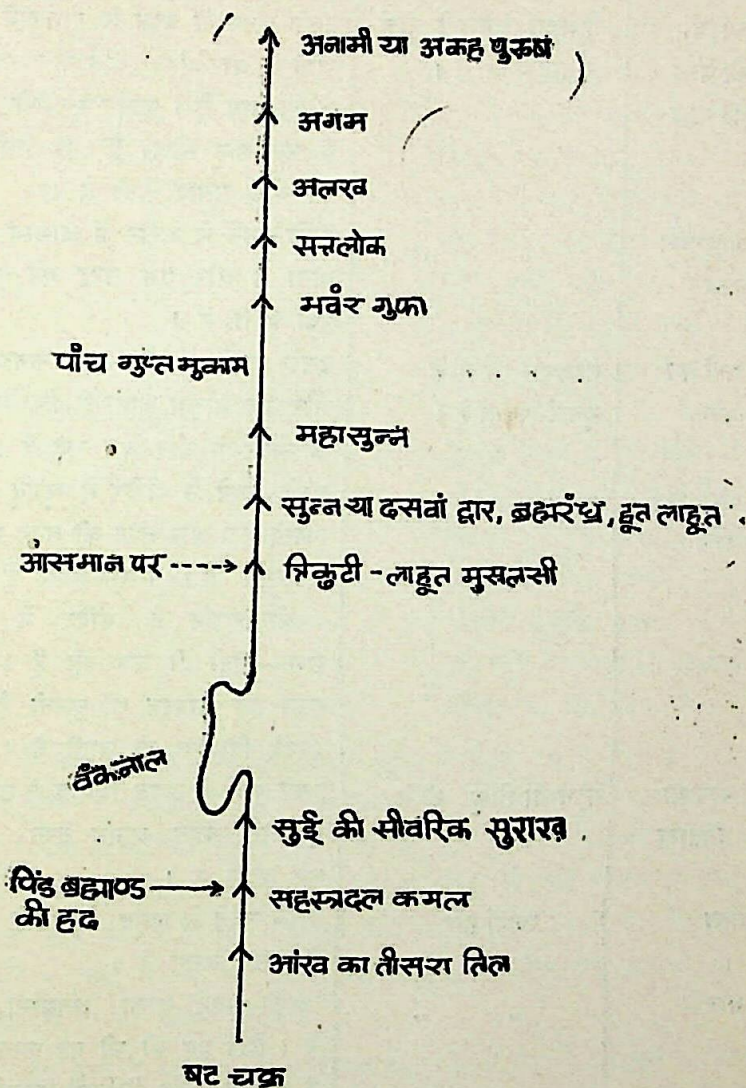 अनामी या अकह पुरुष
अगम
अलख
सत्तलोक
भवंर गुफा
पांच गुप्त मुकाम
महासुन्न
सुन्न या दसवां द्वार, ब्रह्मरंध्र, हूत लाहूत
आसमान पर
त्रिकुटी - लाहूत मुसलसी
वंकनाल
सुई की सीवरिक सुराख
पिंड ब्रह्माण्ड
की हद
सहस्त्रदल कमल
आंख का तीसरा तिल
षट चक्र